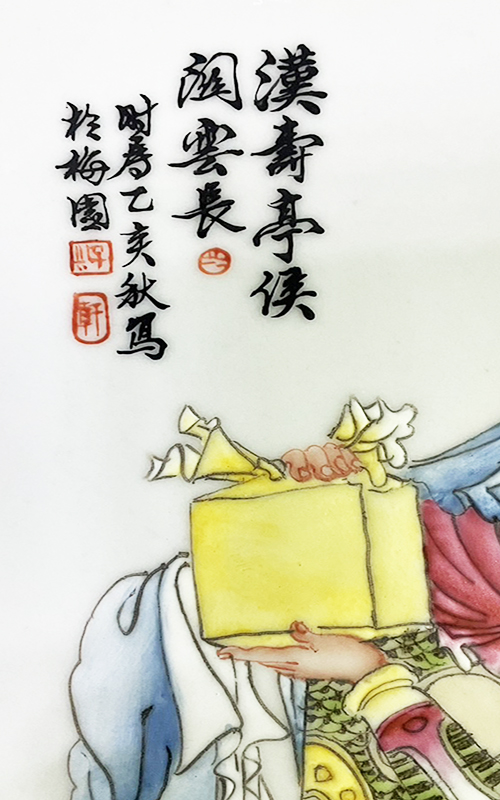 漢壽亭侯
関雲長
时屬乙亥秋寫
於梅園
軒